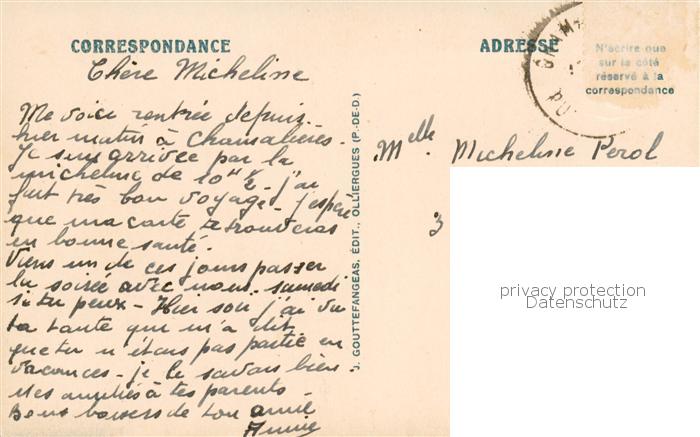 CORRESPONDANCE
Chère Micheline
Me voici rentrée depuis
hier matin à Chamalières.
Je suis arrivée par la
micheline de 10H ½ - j'ai
fait très bon voyage - J'espère
que ma carte te trouveras
en bonne santé.
Viens un de ces jours passer
la soirée avec nous. samedi
si tu peux - Hier soir j'ai vu
ta tante qui m'a dit
que tu n'étais pas partie en
vacances - je le savais bien
Mes amitiés à tes parents -
Bons baisers de ton amie
Annie
J. GOUTTEFANGEAS, ÉDIT., OLLIERGUES (P.-DE-D.)
ADRESSE
N'écrire que
sur le côté
réservé à la
correspondance
CHAM
PU
Melle Micheline Perol
3
privacy protection
Datenschutz